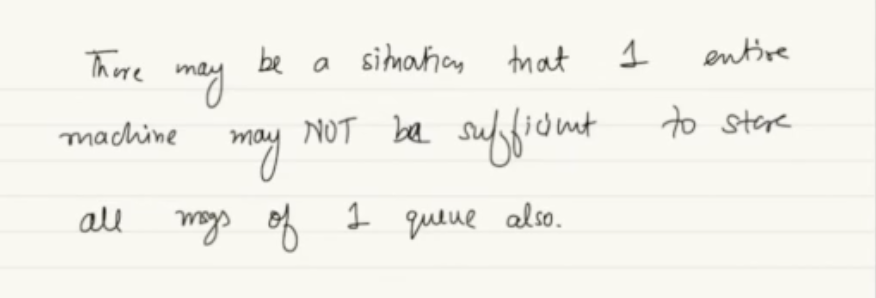 There may be a situation that 1 entire
machine may NOT be sufficient to store
all msgs of 1 queue also.